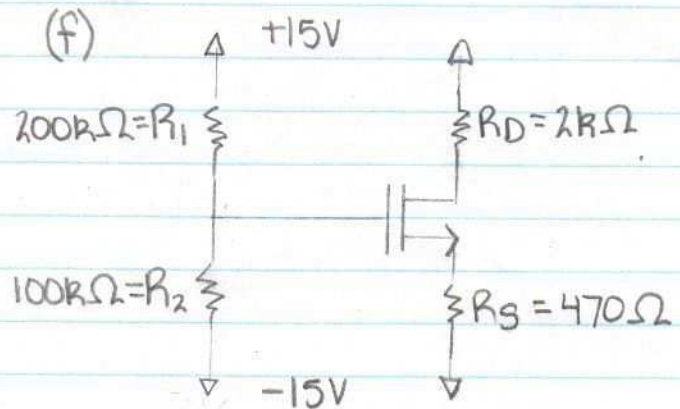 (f)
+15V
200kΩ=R₁
R_D=2kΩ
100kΩ=R₂
R_S=470Ω
-15V